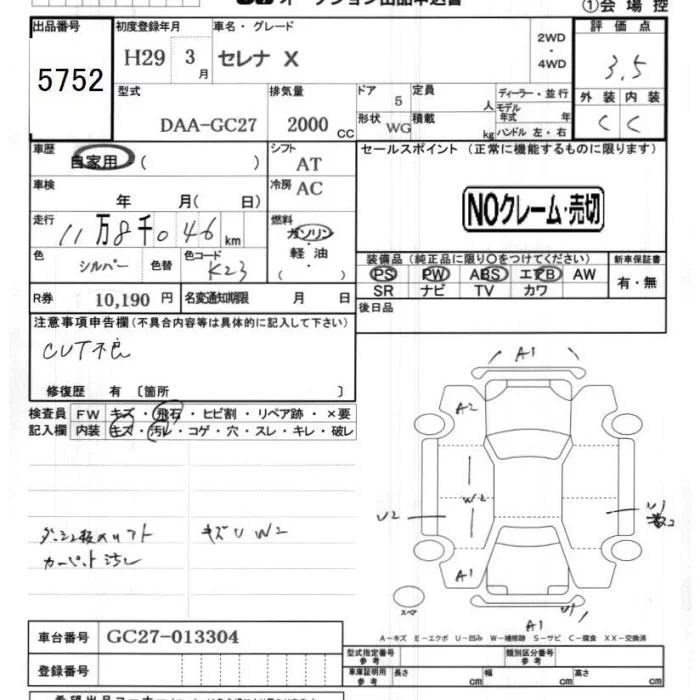 ①会 場 控
出品番号 初度登録年月 車名・グレード 評 価 点
5752 H29 3月 セレナ X 2WD・4WD 3.5
型式 排気量 ドア 定員 ディーラー・並行 外 装 内 装
DAA-GC27 2000 CC 5 人 モデル年式 年 C C
形状 WG 積載 kg ハンドル 左・右
車歴 自家用 ( ) シフト AT セールスポイント (正常に機能するものに限ります)
車検 年 月( 日) 冷房 AC NOクレーム・売切
走行 11万8千046km 燃料 ガソリン
軽 油
( )
色 シルバー 色替 色コード K23
装備品 (純正品に限り○をつけてください) 新車保証書
PS PW ABS エアB AW 有・無
SR ナビ TV カワ
R券 10,190 円 名変通知期限 月 日 後日品
注意事項申告欄(不具合内容等は具体的に記入して下さい)
CVT不良
修復歴 有 〔箇所 〕
検査員 FW キズ・飛石・ヒビ割・リペア跡・×要
記入欄 内装 キズ・汚レ・コゲ・穴・スレ・キレ・破レ
A1
A2
W2
U2
U1
A1
スペア
U1
A1
キズU W2
カーペット汚レ
A-キズ E-エクボ U-凹み W-補修跡 S-サビ C-腐食 XX-交換済
車台番号 GC27-013304
登録番号
型式指定番号 参考 類別区分番号 参考
車庫証明用 参考 長さ cm 幅 cm 高さ cm